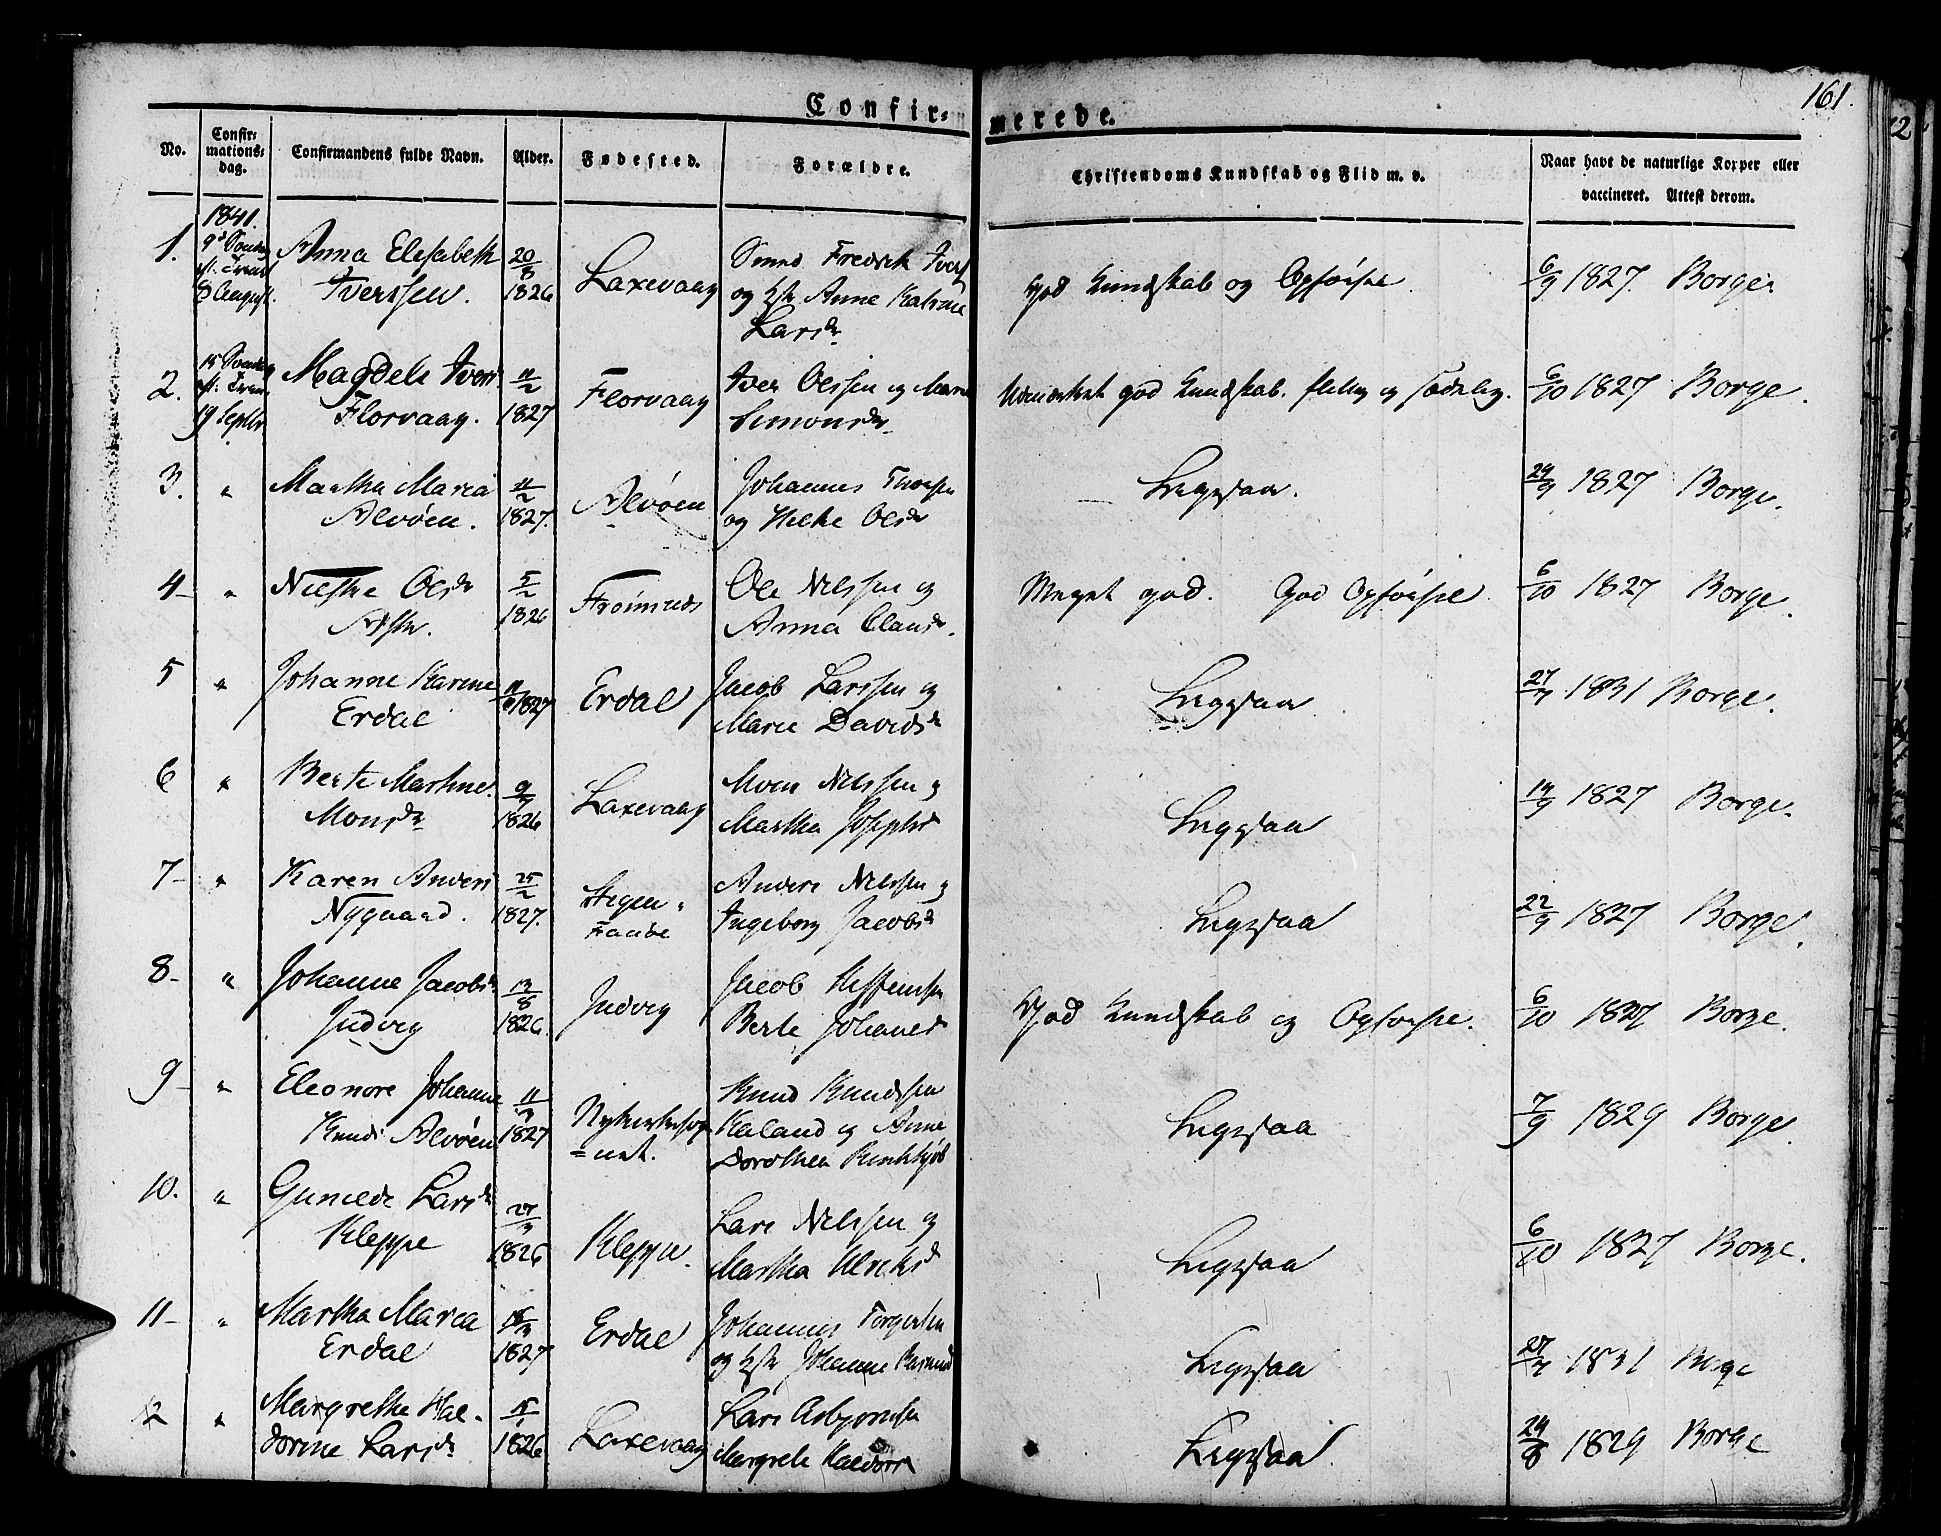 161.
Confir=
merede.
No.
Confir=
mations=
dag.
Confirmandens fulde Navn.
Alder.
Fødested.
Forældre.
Christendoms Kundskab og Flid m. v.
Naar havt de naturlige Kopper eller
vaccineret. Attest derom.
1. 1841. 9d Søndag
8 August.
Anna Elisabeth
Iverssen.
20/8
1826
Laxevaag
Fredrik Ivers
og Hst Anne Katrine
Larsdr
god Kundskab og Opførsel
6/9 1827 Borge
2. 15 Søndag
19 Septbr
Magdele Ivers
Florvaag.
11/2
1827
Florvaag
Iver Olssen og Marie
Simonsdr
Udmærket god Kundskab. flittig og sædelig.
6/10 1827 Borge.
3. "
Martha Maria
Alvøen.
11/2
1827.
Alvøen
Johannes
og Olsdr
Ligesaa.
29/9 1827 Borge.
4 "
Olsdr
Ask.
5/2
1826
Ole Nilssen og
Anna Clausdr.
Meget god. God Opførsel
6/10 1827 Borge.
5 "
Johanne Karine
Erdal
1827
Erdal
Jacob Larssen og
Marie Davidsdr
Ligesaa
27/7 1831 Borge.
6 "
Berte Martine
Monsdr
9/7
1826
Laxevaag
Mons Nilssen og
Martha Josephsd
Ligesaa
19/9 1827 Borge.
7 "
Karen Anders
Nygaard.
25/2
1827.
Anders Nilssen og
Ingeborg Jacobsdr
Ligesaa
22/9 1827 Borge.
8 "
Johanne Jacobsdr
Judvig
13/8
1826.
Judvig
Jacob Steffenssen
Berte Johansd
God Kundskab og Opførsel.
6/10 1827 Borge.
9 "
Eleonore Johanne
Knuds Alvøen
1827
Nykirkesog
=net.
Knud Knudssen
Kaland og Anne
Dorothea
Ligesaa
7/9 1829 Borge.
10. "
Gunilde Larsdr
Kleppe
27/3
1826
Kleppe.
Lars Nilssen og
Martha Ulriksd
Ligesaa
6/10 1827 Borge.
11 "
Martha Maria
Erdal
1827
Erdal
Johannes Torgersen
og Hst Johanne
Ligesaa
27/7 1831 Borge
12 "
Margrethe Hal-
dorine Larsdr
15/1
1826
Laxevaag
Lars Asbjørnsen
Margrete Haldorsd
Ligesaa.
29/8 1829 Borge